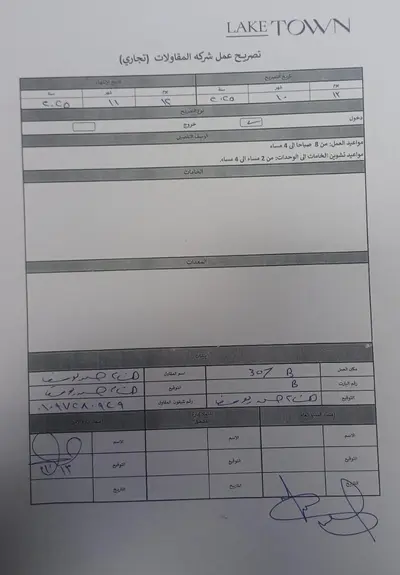 LAKE TOWN
تصريح عمل شركه المقاولات (تجاري)
تاريخ التصريح تاريخ الانتهاء
يوم شهر سنة يوم شهر سنة
١٣ ١٠ ٢٠٢٥ ١٢ ١١ ٢٠٢٥
نوع التصريح
دخول خروج
الوصف التفصيلي
مواعيد العمل: من 8 صباحا الى 4 مساء
مواعيد تشوين الخامات الى الوحدات: من 2 مساء الى 4 مساء.
الخامات
المعدات
مكان العمل 307 B اسم المقاول
B التوقيع
التوقيع رقم تليفون المقاول ٠١٠٩٧٢٨٠٩٤٩
الاسم الاسم الاسم
التوقيع التوقيع التوقيع
التاريخ التاريخ التاريخ